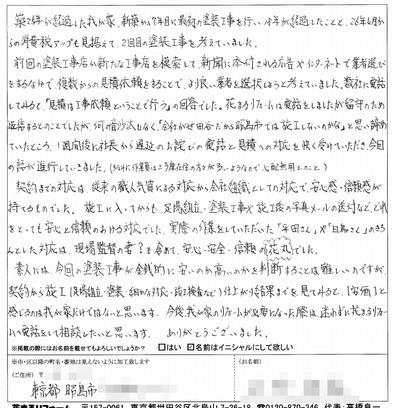 築26年が経過した我が家、新築から7年目に最初の塗装工事を行い、14年が経過したことと、26年4月か
らの消費税アップも見据えて、2回目の塗装工事を考えていました。
前回の塗装工事店か新たな工事店を模索して、新聞に折付される広告やインターネットで業者選び
をするなかで、複数からの見積依頼をすることで、より良い業者を選択しようと考えていました。数社に電話
してみると「見積は工事依頼ということで行う」の回答でした。花まるリフォームは電話をしましたが留守のため
返答するとのことでしたが、何の音沙汰もなく「会社が世田谷だから昭島市では施工しないのかな」と思い諦め
ていたところ、1週間後に社長から遅延のお詫びの電話と見積への対応を快く受けていただき、今回
の話が進行していきました。
契約までの対応は、従来の職人気質による対応から会社組織としての対応で、安心感・信頼感が
持てるものでした。施工に入ってからも、足場組立・塗装工事や施工後の写真メールの送付など、どれ
をとっても安心と信頼のおける対応でした。実際の作業をしていただいた「平田さん」や「目島さん」のきち
んとした対応は、現場監督の者?も含めて、安心・安全・信頼の花丸でした。
素人には、今回の塗装工事が金銭的に安いのか高いのかを判断することは難しいのですが、
契約から施工(足場組立・塗装・細かな対応・施工検査など)仕上がり結果までを見てみると、「安価」と
感じるのは我が家だけではないと思います。今後我が家のリフォームが必要になった際は、迷わず花まるリフォー
ムへ電話をして相談したいと思います。ありがとうございました。
※掲載の際にはお名前を載せてもよろしいでしょうか? □はい ☑名前はイニシャルにして欲しい
※市・区以降の町名・番地は見えないように加工致します
(ご住所) 〒
(お名前)
東京都 昭島市
花まるリフォーム 〒157-0061 東京都世田谷区北烏山7-26-18 ☎0120-870-246 代表:高橋良一